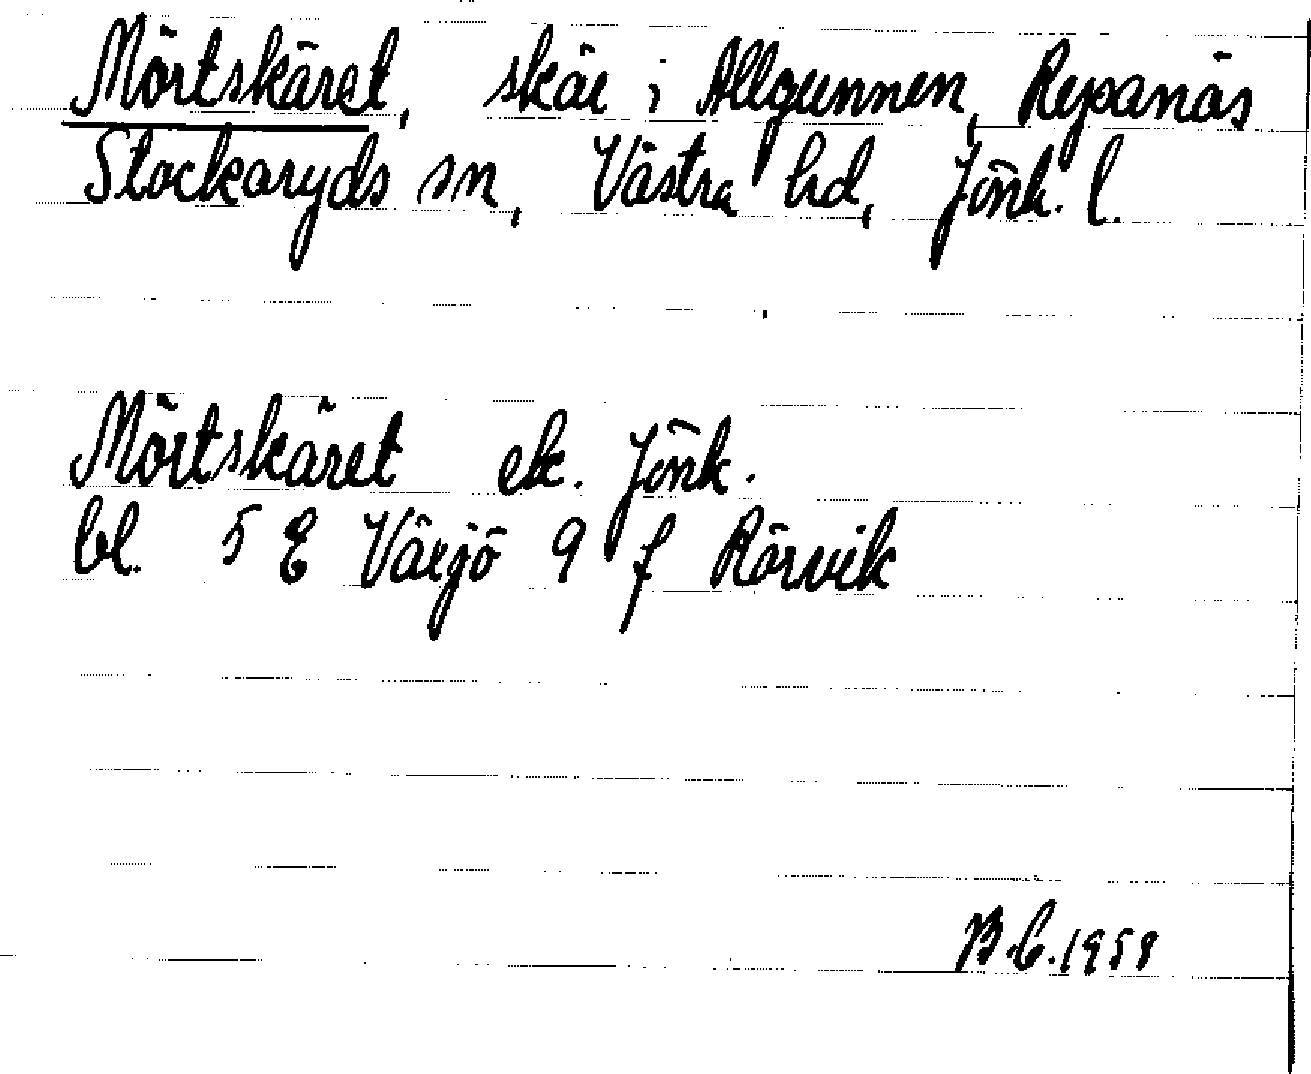 Mörtskäret, skär i Allgunnen, Repanäs
Stockaryds sn, Västra hd, Jönk. l.
Mörtskäret ek. Jönk.
bl. 5 E Växjö 9 f Rörvik
B.C. 1959